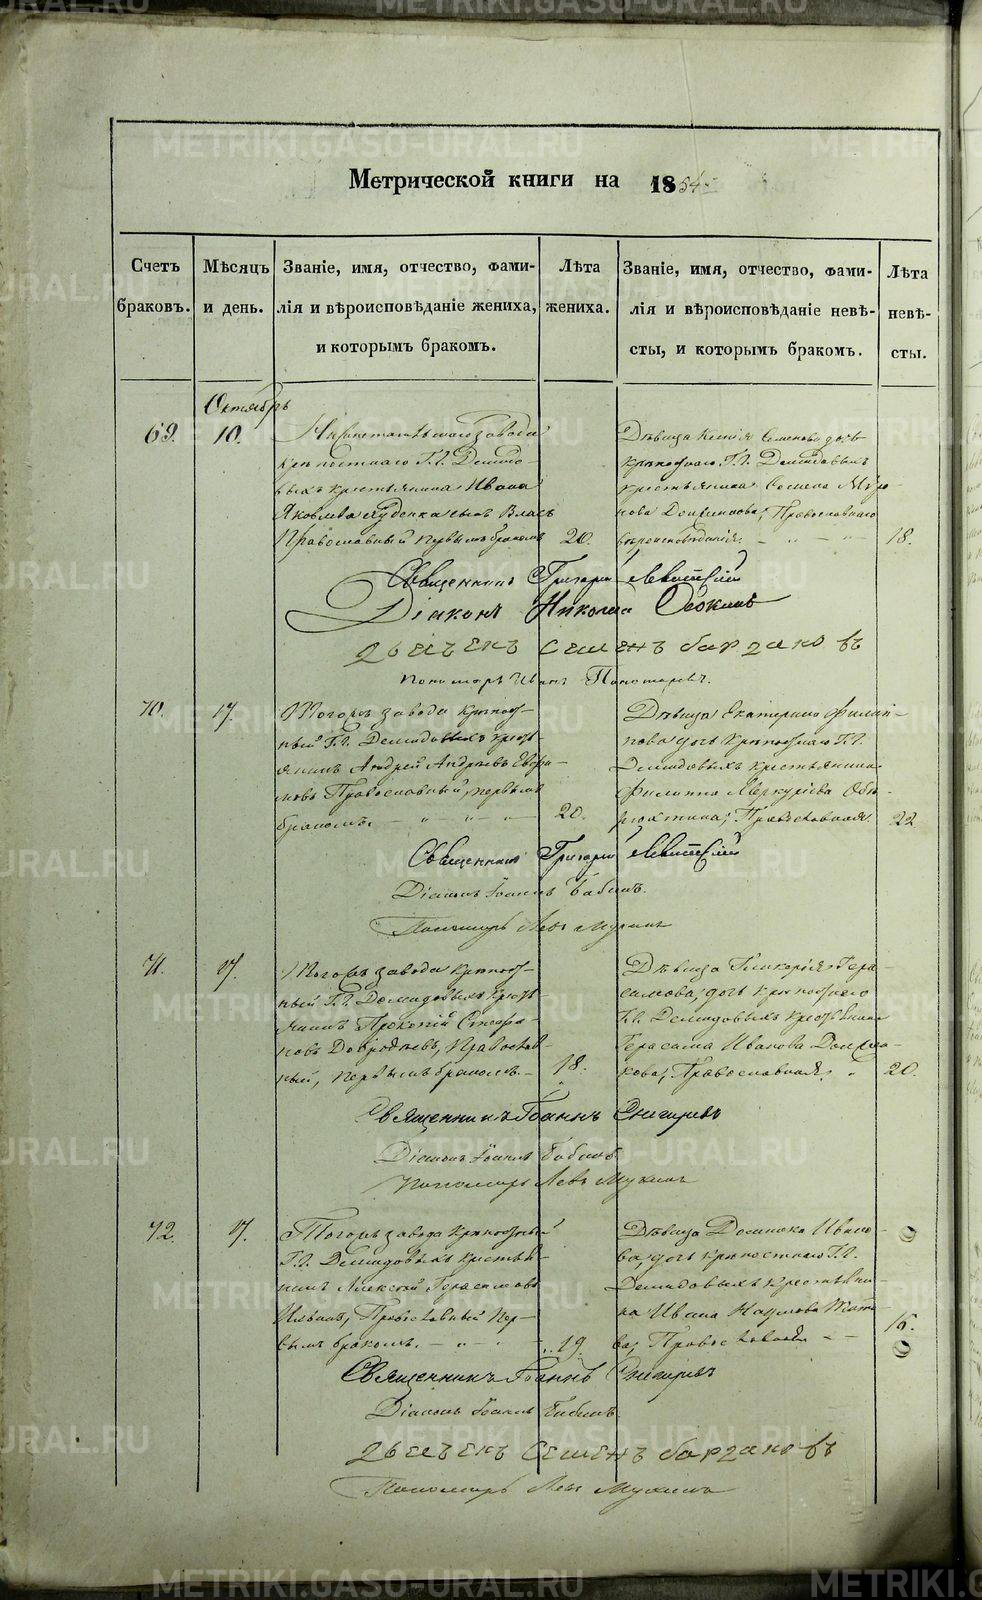 Метрической книги на 1854
Счетъ браковъ.
Мѣсяцъ и день.
Званіе, имя, отчество, фамилія и вѣроисповѣданіе жениха, и которымъ бракомъ.
Лѣта жениха.
Званіе, имя, отчество, фамилія и вѣроисповѣданіе невѣсты, и которымъ бракомъ.
Лѣта невѣсты.
Октябрь
69.
10.
завода
крѣпостнаго Г.Г. Демидо-
выхъ крестьянина Ивана
Яковлева сынъ Власъ
Православный первымъ бракомъ
20.
Дѣвица Ксенія Семенова дочь
крѣпостнаго Г.Г. Демидовыхъ
крестьянина Семена Миро-
нова Православнаго
вѣроисповѣданія.
18.
Священникъ Григорій Левитскій
Діаконъ Николай
Дьячекъ Семенъ
Пономарь Иванъ Пономаревъ.
70.
17.
Тогожъ завода крѣпост-
ный Г.Г. Демидовыхъ кресть-
янинъ Андрей Андреевъ
Православный, первымъ
бракомъ.
20.
Дѣвица Екатерина Филип-
пова дочь крѣпостнаго Г.Г.
Демидовыхъ крестьянина
Филиппа Меркурьева
Православная.
22
Священникъ Григорій Левитскій
Діаконъ Іоаннъ Бабинъ.
Пономарь Левъ Мухинъ
71.
17.
Тогожъ завода крѣпост-
ный Г.Г. Демидовыхъ кресть-
янинъ Прокопій Стефа-
новъ Православ-
ный, первымъ бракомъ.
18.
Дѣвица Гликерія Гера-
симова, дочь крѣпостнаго
Г.Г. Демидовыхъ крестьянина
Герасима Иванова
Православная.
20.
Священникъ Іоаннъ Снегиревъ
Діаконъ Іоаннъ Бабинъ.
Пономарь Левъ Мухинъ
72.
17.
Тогожъ завода крѣпостный
Г.Г. Демидовыхъ крестья-
нинъ Алексѣй Герасимовъ
Православный пер-
вымъ бракомъ.
19.
Дѣвица Домника Ивано-
ва, дочь крѣпостнаго Г.Г.
Демидовыхъ крестьяни-
на Ивана Наумова
Православная
16.
Священникъ Іоаннъ Снегиревъ
Діаконъ Іоаннъ Бабинъ.
Дьячекъ Семенъ
Пономарь Левъ Мухинъ
METRIKI.GASO-URAL.RU